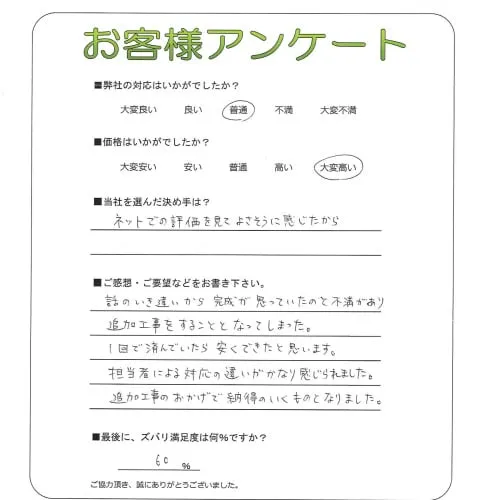 お客様アンケート
■弊社の対応はいかがでしたか？
大変良い 良い 普通 不満 大変不満
■価格はいかがでしたか？
大変安い 安い 普通 高い 大変高い
■当社を選んだ決め手は？
ネットでの評価を見てよさそうに感じたから
■ご感想・ご要望などをお書き下さい。
話のいき違いから完成が思っていたのと不満があり
追加工事をすることとなってしまった。
1回で済んでいたら安くできたと思います。
担当者による対応の違いがかなり感じられました。
追加工事のおかげで納得のいくものとなりました。
■最後に、ズバリ満足度は何%ですか？
60 %
ご協力頂き、誠にありがとうございました。